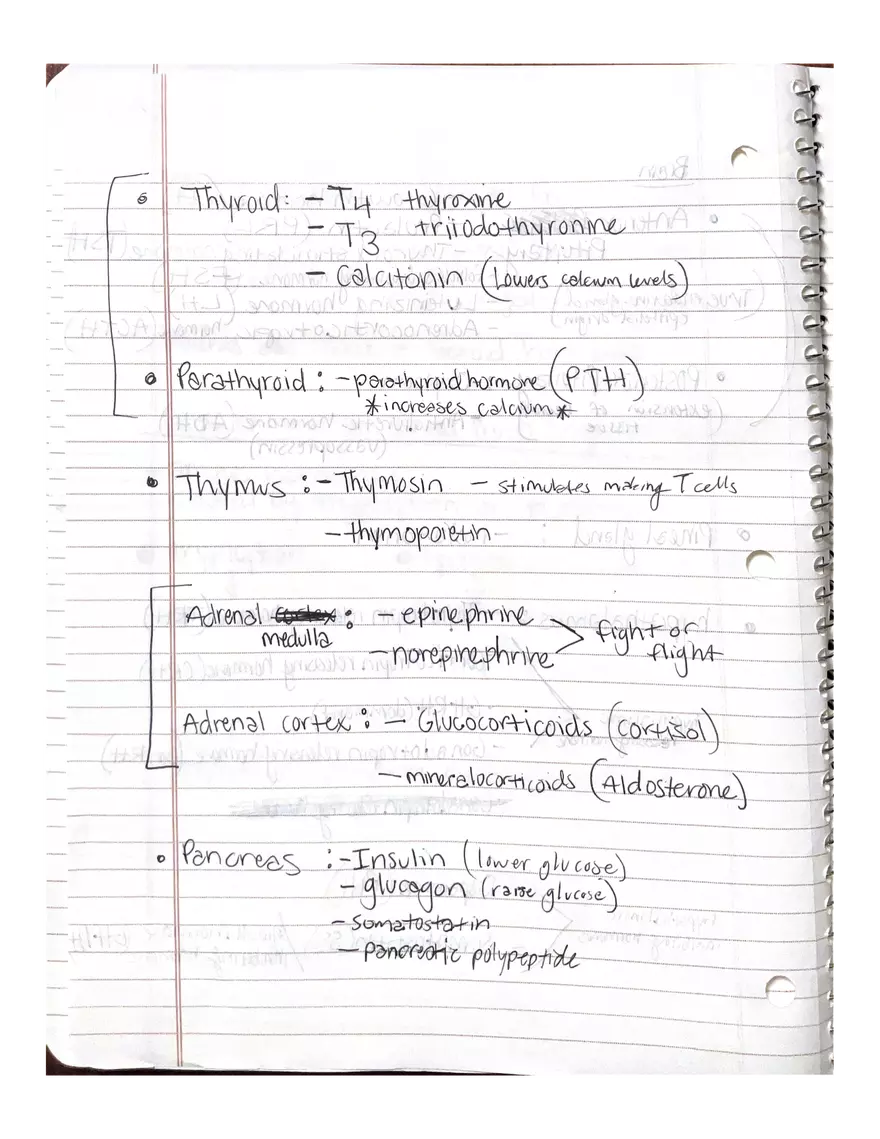 • Thyroid: - T4 thyroxine
- T3 triiodothyronine
- Calcitonin (Lowers calcium levels)
• Parathyroid: - parathyroid hormone (PTH)
*increases calcium*
• Thymus: - Thymosin - stimulates making T cells
- thymopoietin
Adrenal cortex: - epinephrine
medulla
- norepinephrine > fight or flight
Adrenal cortex: - Glucocorticoids (Cortisol)
- mineralocorticoids (Aldosterone)
• Pancreas: - Insulin (lower glucose)
- glucagon (raise glucose)
- somatostatin
- pancreatic polypeptide